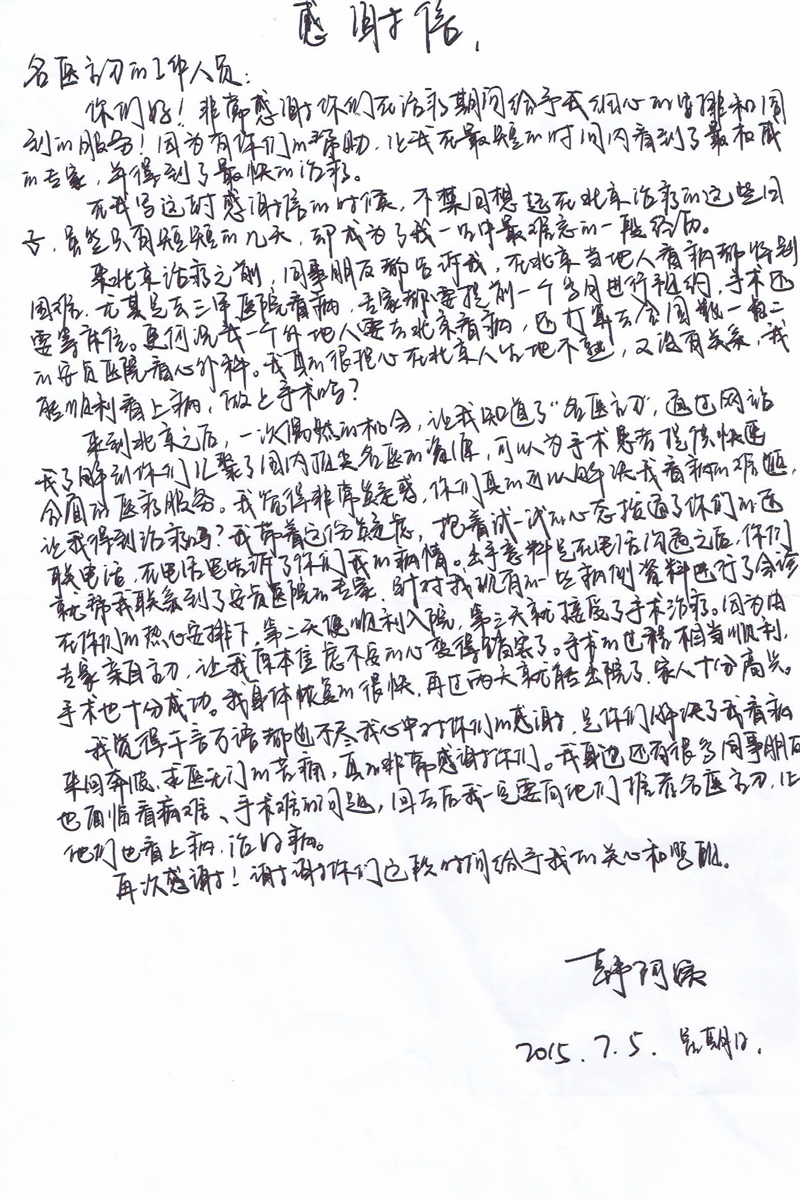 感谢信,
名医主刀的工作人员:
你们好！非常感谢你们在治疗期间给予我细心的安排和周
到的服务！因为有你们的帮助,让我在最短的时间内看到了最权威
的专家,并得到了最快的治疗。
在我写这封感谢信的时候,不禁回想起在北京治病的这些日
子,虽然只有短短的几天,却成为了我一生中最难忘的一段经历。
来北京治疗之前,同事朋友都告诉我,在北京当地人看病都特别
困难,尤其是去三甲医院看病,专家都要提前一个多月进行预约,手术还
要等床位。更何况我一个外地人要去北京看病,还打算去全国数一数二
的安贞医院看心外科。我真的很担心在北京人生地不熟,又没有关系,我
能顺利看上病,做上手术吗?
来到北京之后,一次偶然的机会,让我知道了“名医主刀”,通过网站
我了解到你们汇聚了国内顶尖名医的资源,可以为手术患者提供快速
全面的医疗服务。我觉得非常疑惑,你们真的可以解决我看病的难题,
让我得到治疗吗?我带着这份疑虑,抱着试一试的心态拨通了你们的
联电话,在电话里告诉了你们我的病情。出乎意料是在电话沟通之后,你们
就帮我联系到了安贞医院的专家,针对我现有的一些病例资料进行了会诊
在你们的热心安排下,第二天便顺利入院,第三天就接受了手术治疗。因为由
专家亲自主刀,让我原本焦虑不安的心变得踏实了。手术的过程相当顺利,
手术也十分成功。我身体恢复的很快,再过两天就能出院了,家人十分高兴。
我觉得千言万语都道不尽我心中对你们的感谢,是你们解决了我看病
来回奔波、求医无门的苦痛,真的非常感谢你们。我身边还有很多同事朋友
也面临看病难、手术难的问题,回去后我一定要向他们推荐名医主刀,让
他们也看上病,治好病。
再次感谢！谢谢你们这段时间给予我的关心和照顾。
韩阿姨
2015.7.5.星期日.